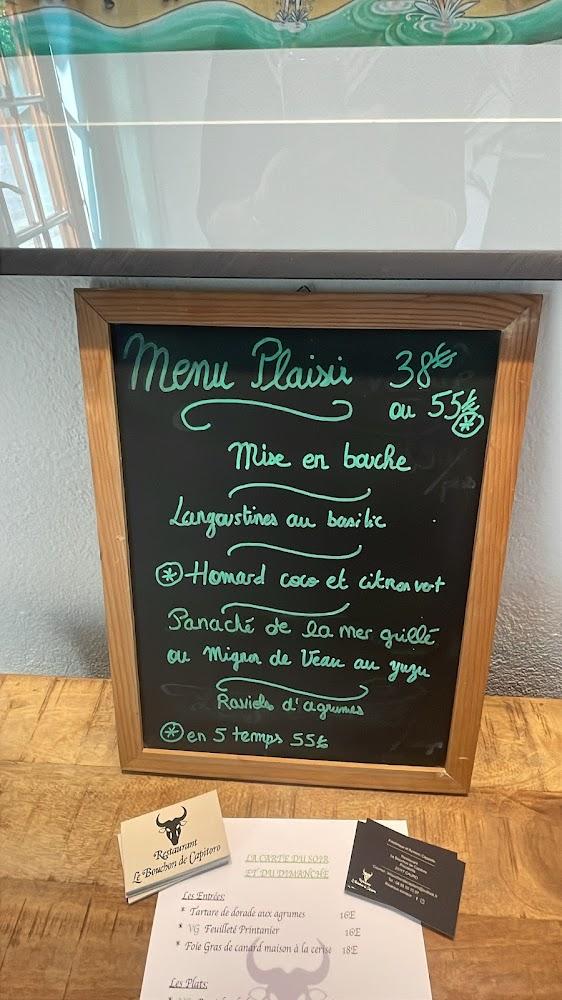 Menu Plaisir 38€
ou 55€ *
Mise en bouche
Langoustines au basilic
* Homard coco et citron vert
Panaché de la mer grillé
ou Mignon de Veau au yuzu
Raviole d'agrumes
* en 5 temps 55€
Restaurant
Le Bouchon de Capitoro
LA CARTE DU SOIR
ET DU DIMANCHE
Les Entrées:
* Tartare de dorade aux agrumes 16E
* VG Feuilleté Printanier 16E
* Foie Gras de canard maison à la cerise 18E
Les Plats: